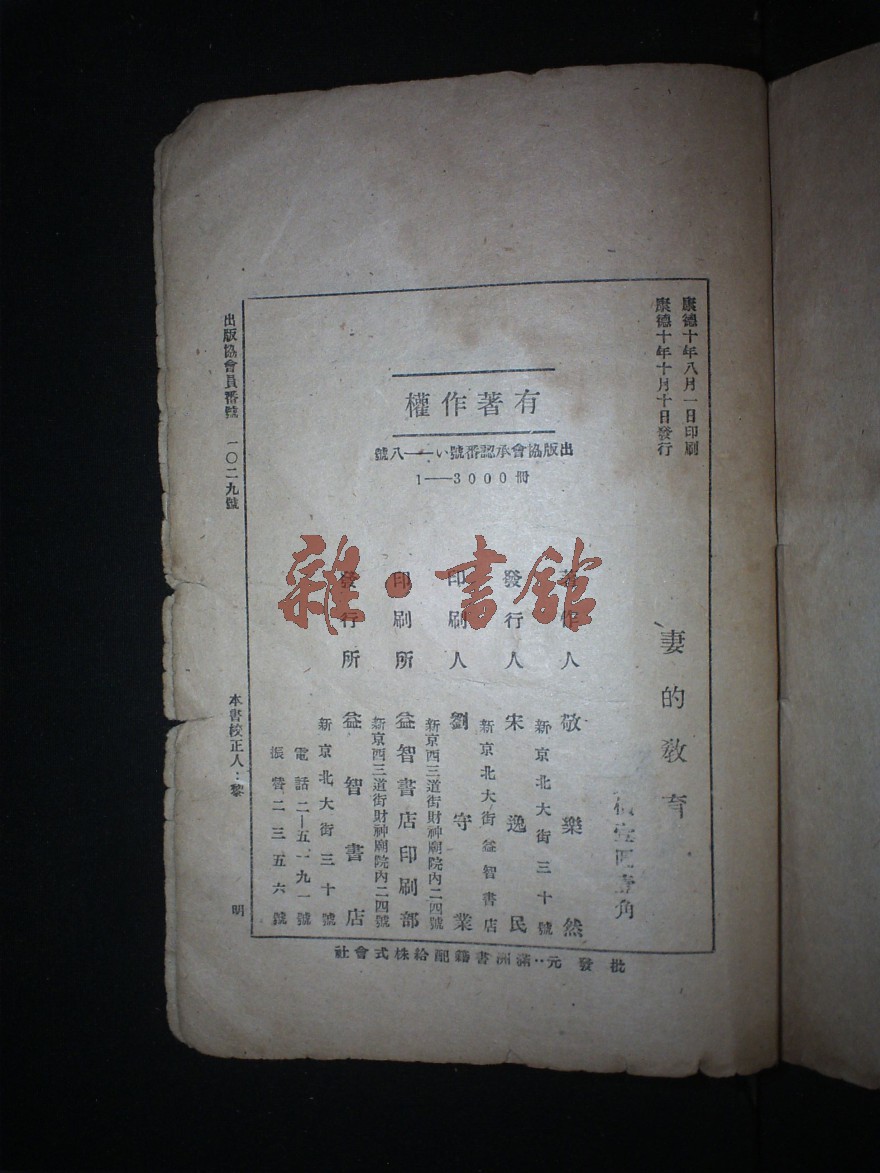 康德十年八月一日印刷
康德十年十月十日發行
妻的教育
壹角
著作人 敬樂然
新京北大街三十號
發行人 宋逸民
新京北大街益智書店
印刷人 劉守業
新京西三道街財神廟院內二四號
印刷所 益智書店印刷部
新京西三道街財神廟院內二四號
發行所 益智書店
新京北大街三十號
電話二—五一九一號
振替二三五六號
有著作權
出版協會承認番號い—一八號
冊3000—1
批發元‥滿洲書籍配給株式會社
出版協會員番號 一〇二九號
本書校正人：黎 明
雜·書館